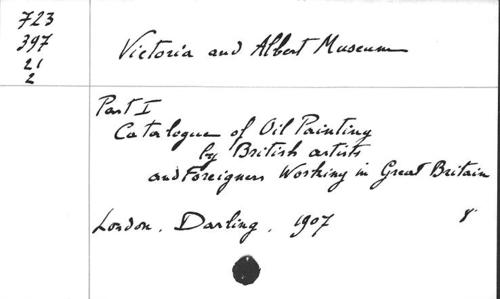 723
397
21
2
Victoria and Albert Museum
Part I
Catalogue of Oil Painting
by British artists
and Foreigners Working in Great Britain
London. Darling. 1907 8°